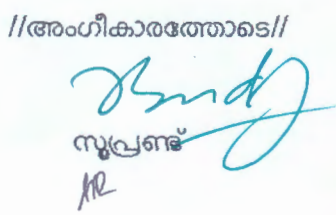 //അംഗീകാരത്തോടെ//
സൂപ്രണ്ട്